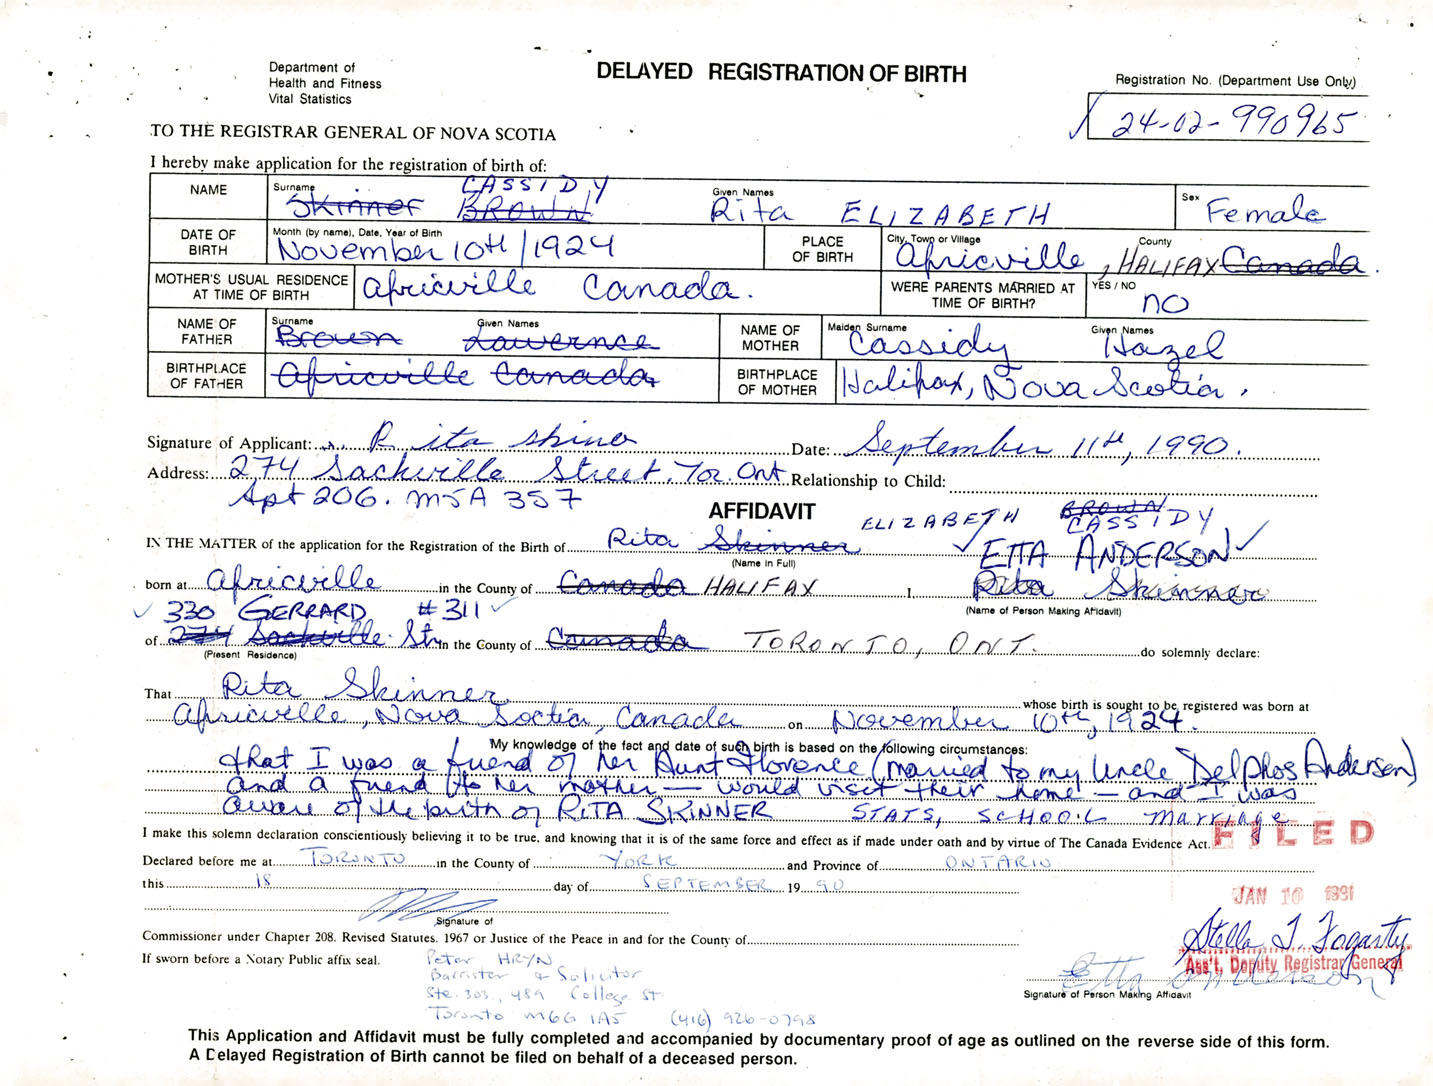 Department of
Health and Fitness
Vital Statistics
DELAYED REGISTRATION OF BIRTH
Registration No. (Department Use Only)
24-02-990965
TO THE REGISTRAR GENERAL OF NOVA SCOTIA
I hereby make application for the registration of birth of:
NAME Surname Skinner BROWN CASSIDY Given Names Rita ELIZABETH Sex Female
DATE OF BIRTH Month (by name), Date, Year of Birth November 10th/1924 PLACE OF BIRTH City, Town or Village Africville, County HALIFAX Canada.
MOTHER'S USUAL RESIDENCE AT TIME OF BIRTH Africville Canada. WERE PARENTS MARRIED AT TIME OF BIRTH? YES / NO NO
NAME OF FATHER Surname Brown Given Names Lawernce NAME OF MOTHER Maiden Surname Cassidy Given Names Hazel
BIRTHPLACE OF FATHER Africville Canada BIRTHPLACE OF MOTHER Halifax, Nova Scotia.
Signature of Applicant: Rita Date: September 11th, 1990.
Address: 274 Sackville Street. Tor. Ont Relationship to Child:
Apt 206. M5A 3S7
AFFIDAVIT
ELIZABETH BROWN CASSIDY
IN THE MATTER of the application for the Registration of the Birth of Rita Skinner ETTA ANDERSON
(Name in Full)
born at Africville in the County of Canada HALIFAX I, Rita Skinner
(Name of Person Making Affidavit)
330 GERRARD #311
of 274 Sackville St. in the County of Canada TORONTO, ONT. do solemnly declare:
(Present Residence)
That Rita Skinner whose birth is sought to be registered was born at
Africville, Nova Soctia, Canada on November 10th, 1924.
My knowledge of the fact and date of such birth is based on the following circumstances:
that I was a friend of her Aunt Florence (married to my Uncle Delphos Anderson)
and a friend to her mother — would visit their home — and I was
aware of the birth of RITA SKINNER STATS, SCHOOL marriage
I make this solemn declaration conscientiously believing it to be true, and knowing that it is of the same force and effect as if made under oath and by virtue of The Canada Evidence Act.
FILED
Declared before me at TORONTO in the County of YORK and Province of ONTARIO
this 18 day of SEPTEMBER 19 90
JAN 10 1991
Signature of
Commissioner under Chapter 208. Revised Statutes. 1967 or Justice of the Peace in and for the County of
Stella J. Fogarty
Ass't. Deputy Registrar General
If sworn before a Notary Public affix seal.
Peter HRYN
Barrister & Solicitor
Ste. 303, 489 College St
Toronto M6G 1A5 (416) 926-0798
Etta Anderson
Signature of Person Making Affidavit
This Application and Affidavit must be fully completed and accompanied by documentary proof of age as outlined on the reverse side of this form.
A Delayed Registration of Birth cannot be filed on behalf of a deceased person.